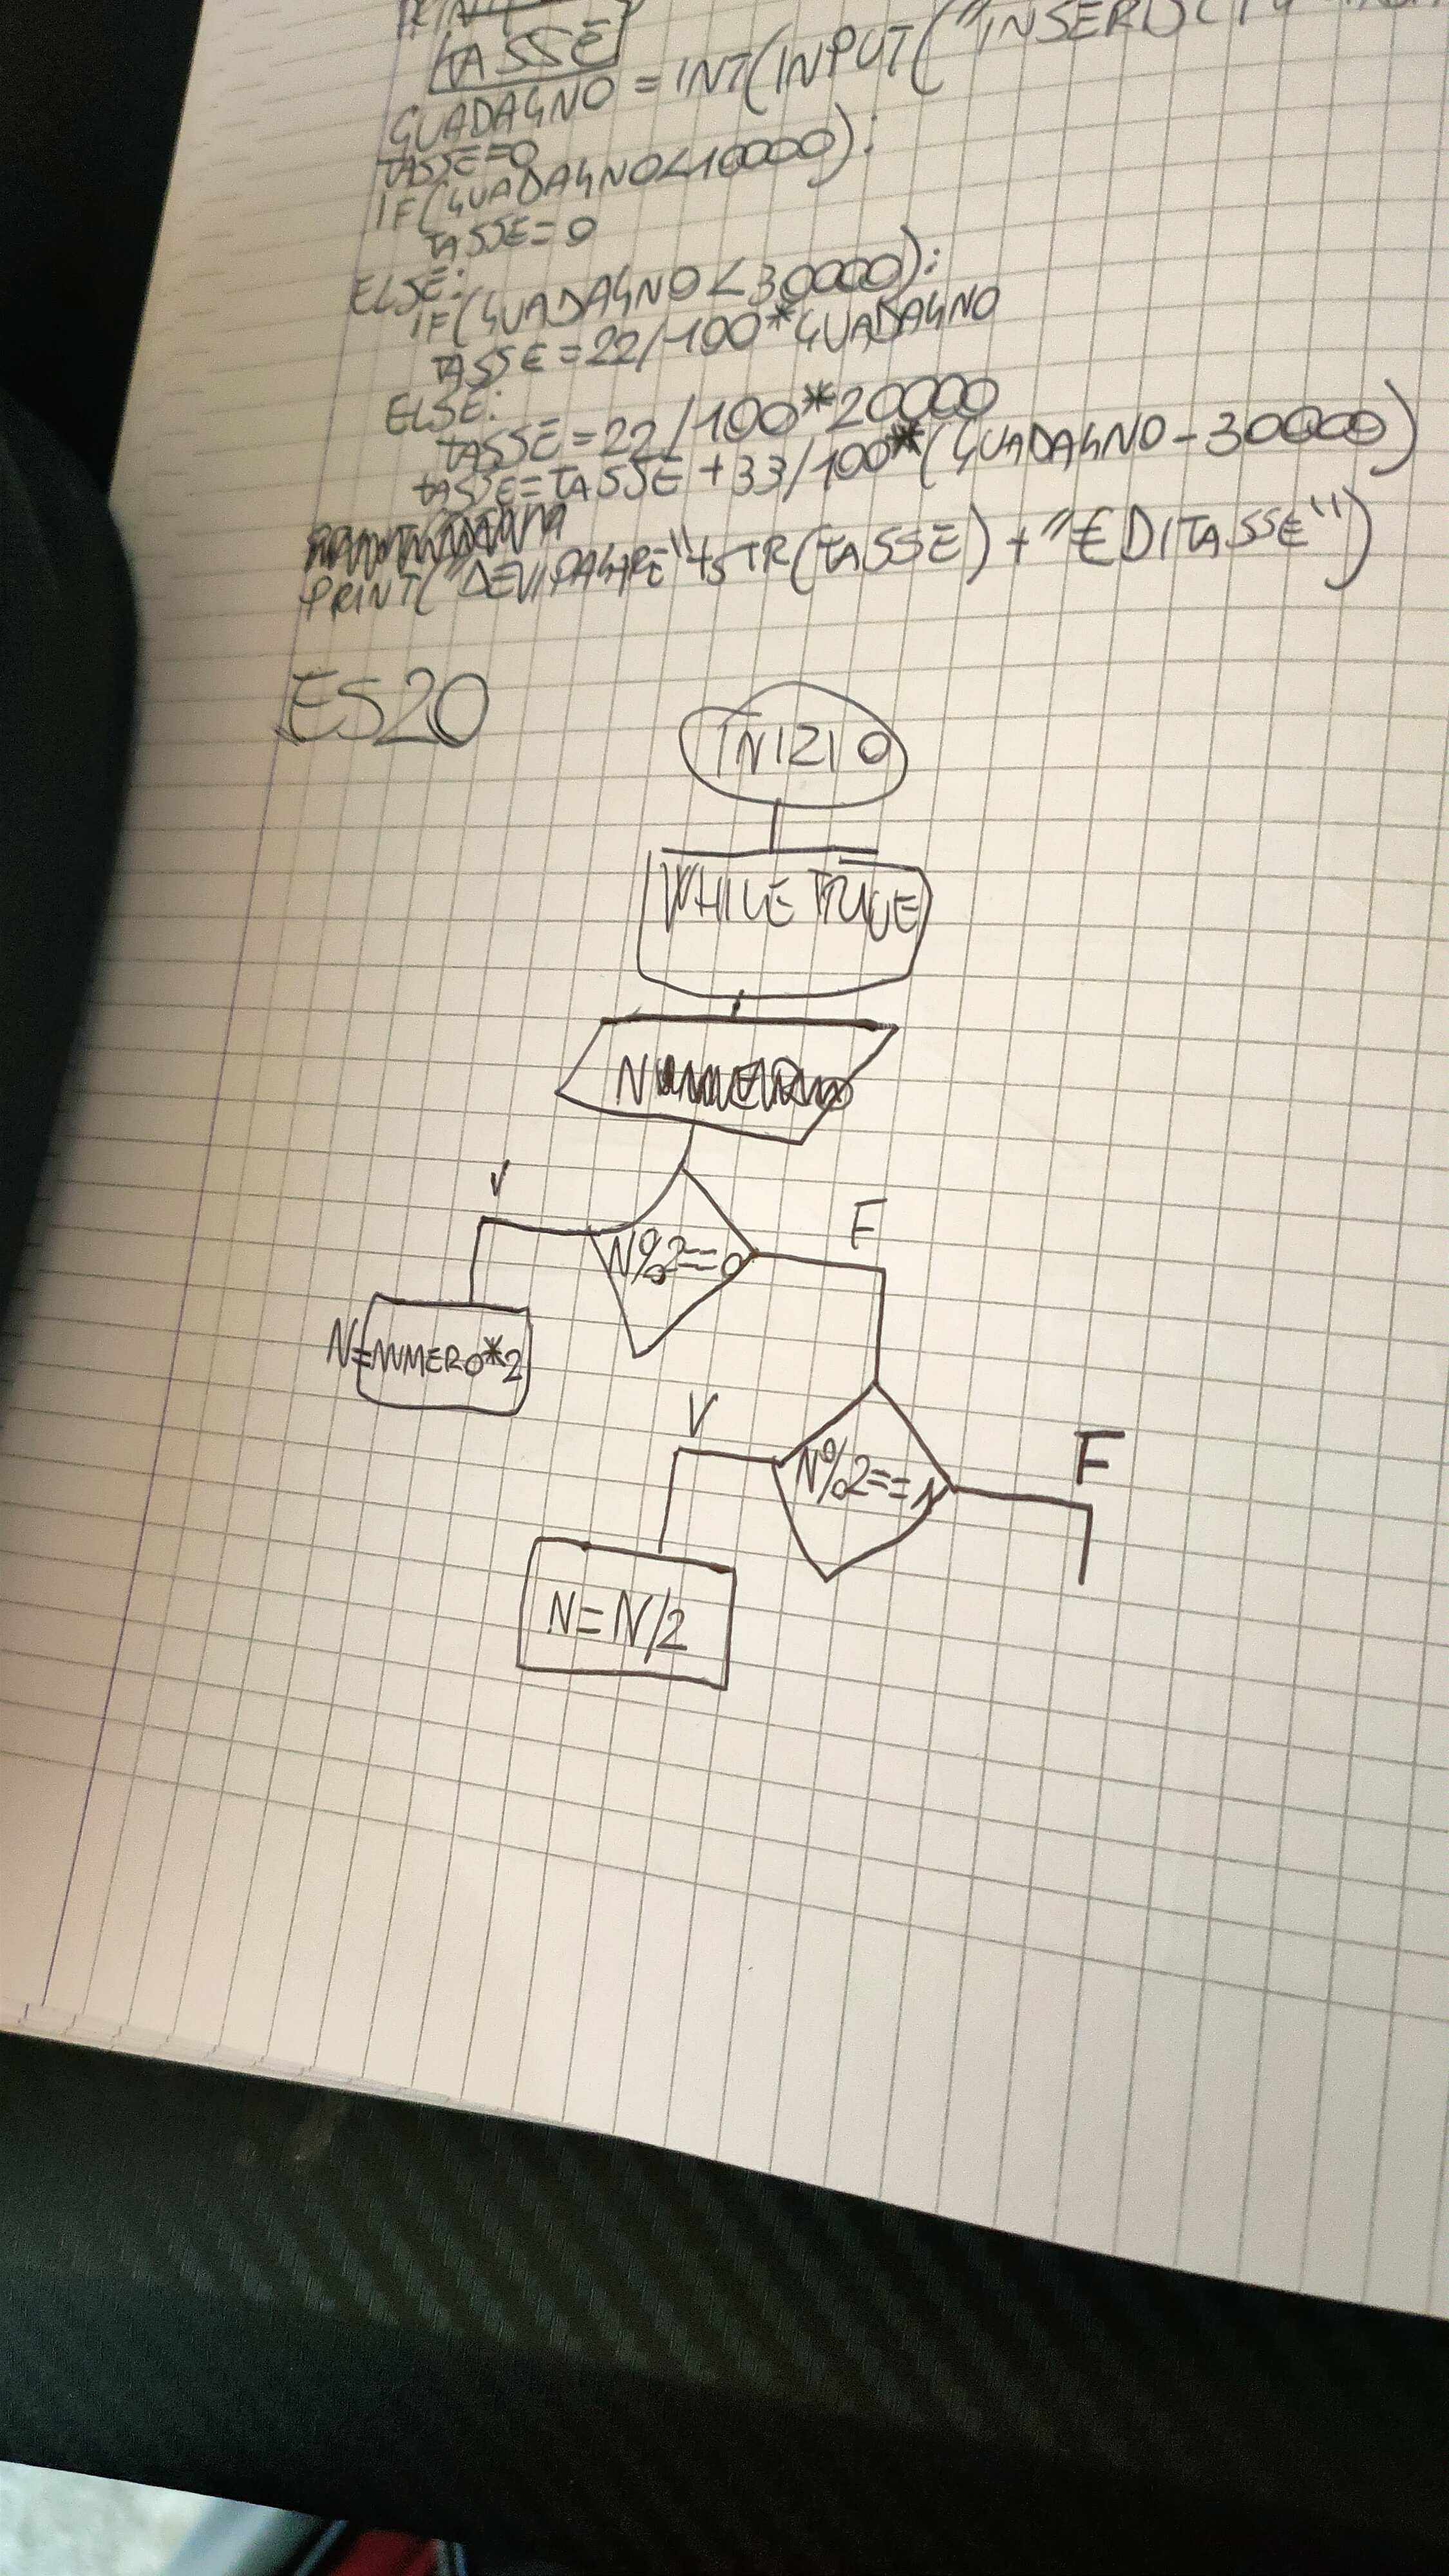 TASSE
GUADAGNO = INT(INPUT("INSERISCI
TASSE=0
IF(GUADAGNO<10000):
TASSE=0
ELSE:
IF(GUADAGNO<30000):
TASSE=22/100*GUADAGNO
ELSE:
TASSE=22/100*20000
TASSE=TASSE+33/100*(GUADAGNO-30000)
PRINT("DEVI PAGARE"+STR(TASSE)+"€ DI TASSE")
ES20
INIZIO
WHILE TRUE
V
F
N%2==0
N=NUMERO*2
V
F
N%2==N
N=N/2